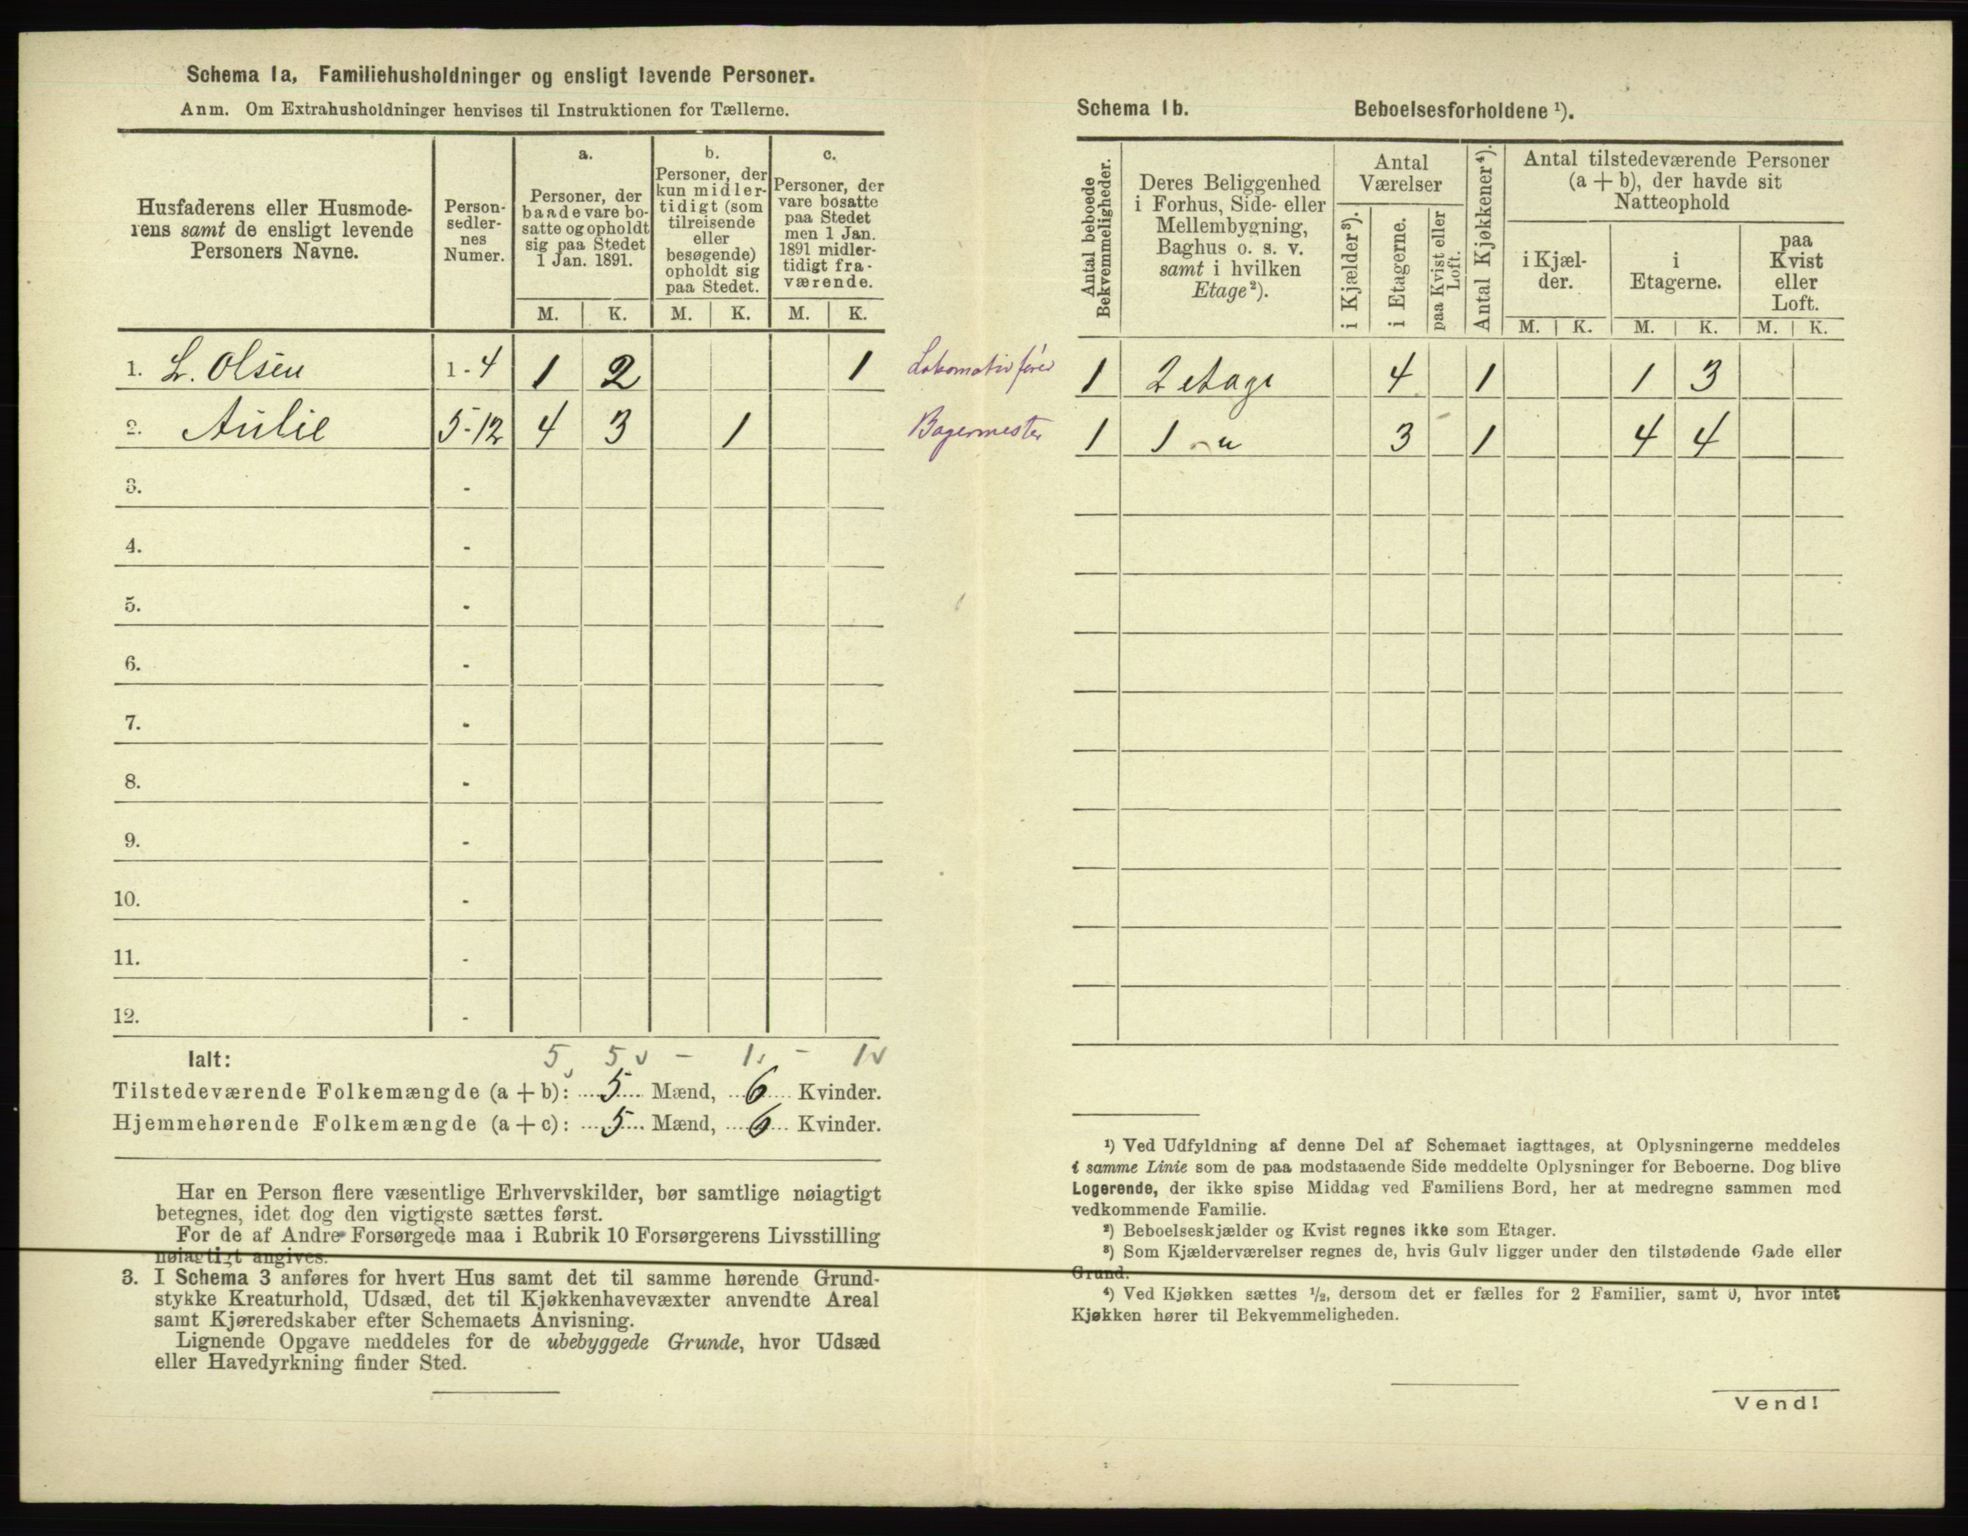 Schema 1a, Familiehusholdninger og ensligt levende Personer.
Anm. Om Extrahusholdninger henvises til Instruktionen for Tællerne.
Husfaderens eller Husmode-
rens samt de ensligt levende
Personers Navne.
Person-
sedler-
nes
Numer.
a.
Personer, der
baade vare bo-
satte og opholdt
sig paa Stedet
1 Jan. 1891.
b.
Personer, der
kun midler-
tidigt (som
tilreisende
eller
besøgende)
opholdt sig
paa Stedet.
c.
Personer, der
vare bosatte
paa Stedet
men 1 Jan.
1891 midler-
tidigt fra-
værende.
M. K. M. K. M. K.
1. L. Olsen 1-4 1 2 1 Lokomotivfører
2. Aulie 5-12 4 3 1 Bagermester
3. -
4. -
5. -
6. -
7. -
8. -
9. -
10. -
11. -
12. -
Ialt: 5 5 - 1 - 1
Tilstedeværende Folkemængde (a + b): 5 Mænd, 6 Kvinder.
Hjemmehørende Folkemængde (a + c): 5 Mænd, 6 Kvinder.
Har en Person flere væsentlige Erhvervskilder, bør samtlige nøiagtigt
betegnes, idet dog den vigtigste sættes først.
For de af Andre Forsørgede maa i Rubrik 10 Forsørgerens Livsstilling
nøiagtigt angives.
3. I Schema 3 anføres for hvert Hus samt det til samme hørende Grund-
stykke Kreaturhold, Udsæd, det til Kjøkkenhavevæxter anvendte Areal
samt Kjøreredskaber efter Schemaets Anvisning.
Lignende Opgave meddeles for de ubebyggede Grunde, hvor Udsæd
eller Havedyrkning finder Sted.
Schema 1b. Beboelsesforholdene ¹).
Antal beboede
Bekvemmeligheder.
Deres Beliggenhed
i Forhus, Side- eller
Mellembygning,
Baghus o. s. v.
samt i hvilken
Etage²).
Antal
Værelser
i Kjælder³).
i Etagerne.
paa Kvist eller
Loft.
Antal Kjøkkener⁴).
Antal tilstedeværende Personer
(a + b), der havde sit
Natteophold
i Kjæl-
der.
i
Etagerne.
paa
Kvist
eller
Loft.
M. K. M. K. M. K.
1 2 etage 4 1 1 3
1 1 - " 3 1 4 4
¹) Ved Udfyldning af denne Del af Schemaet iagttages, at Oplysningerne meddeles
i samme Linie som de paa modstaaende Side meddelte Oplysninger for Beboerne. Dog blive
Logerende, der ikke spise Middag ved Familiens Bord, her at medregne sammen med
vedkommende Familie.
²) Beboelseskjælder og Kvist regnes ikke som Etager.
³) Som Kjælderværelser regnes de, hvis Gulv ligger under den tilstødende Gade eller
Grund.
⁴) Ved Kjøkken sættes ½, dersom det er fælles for 2 Familier, samt 0, hvor intet
Kjøkken hører til Bekvemmeligheden.
Vend!